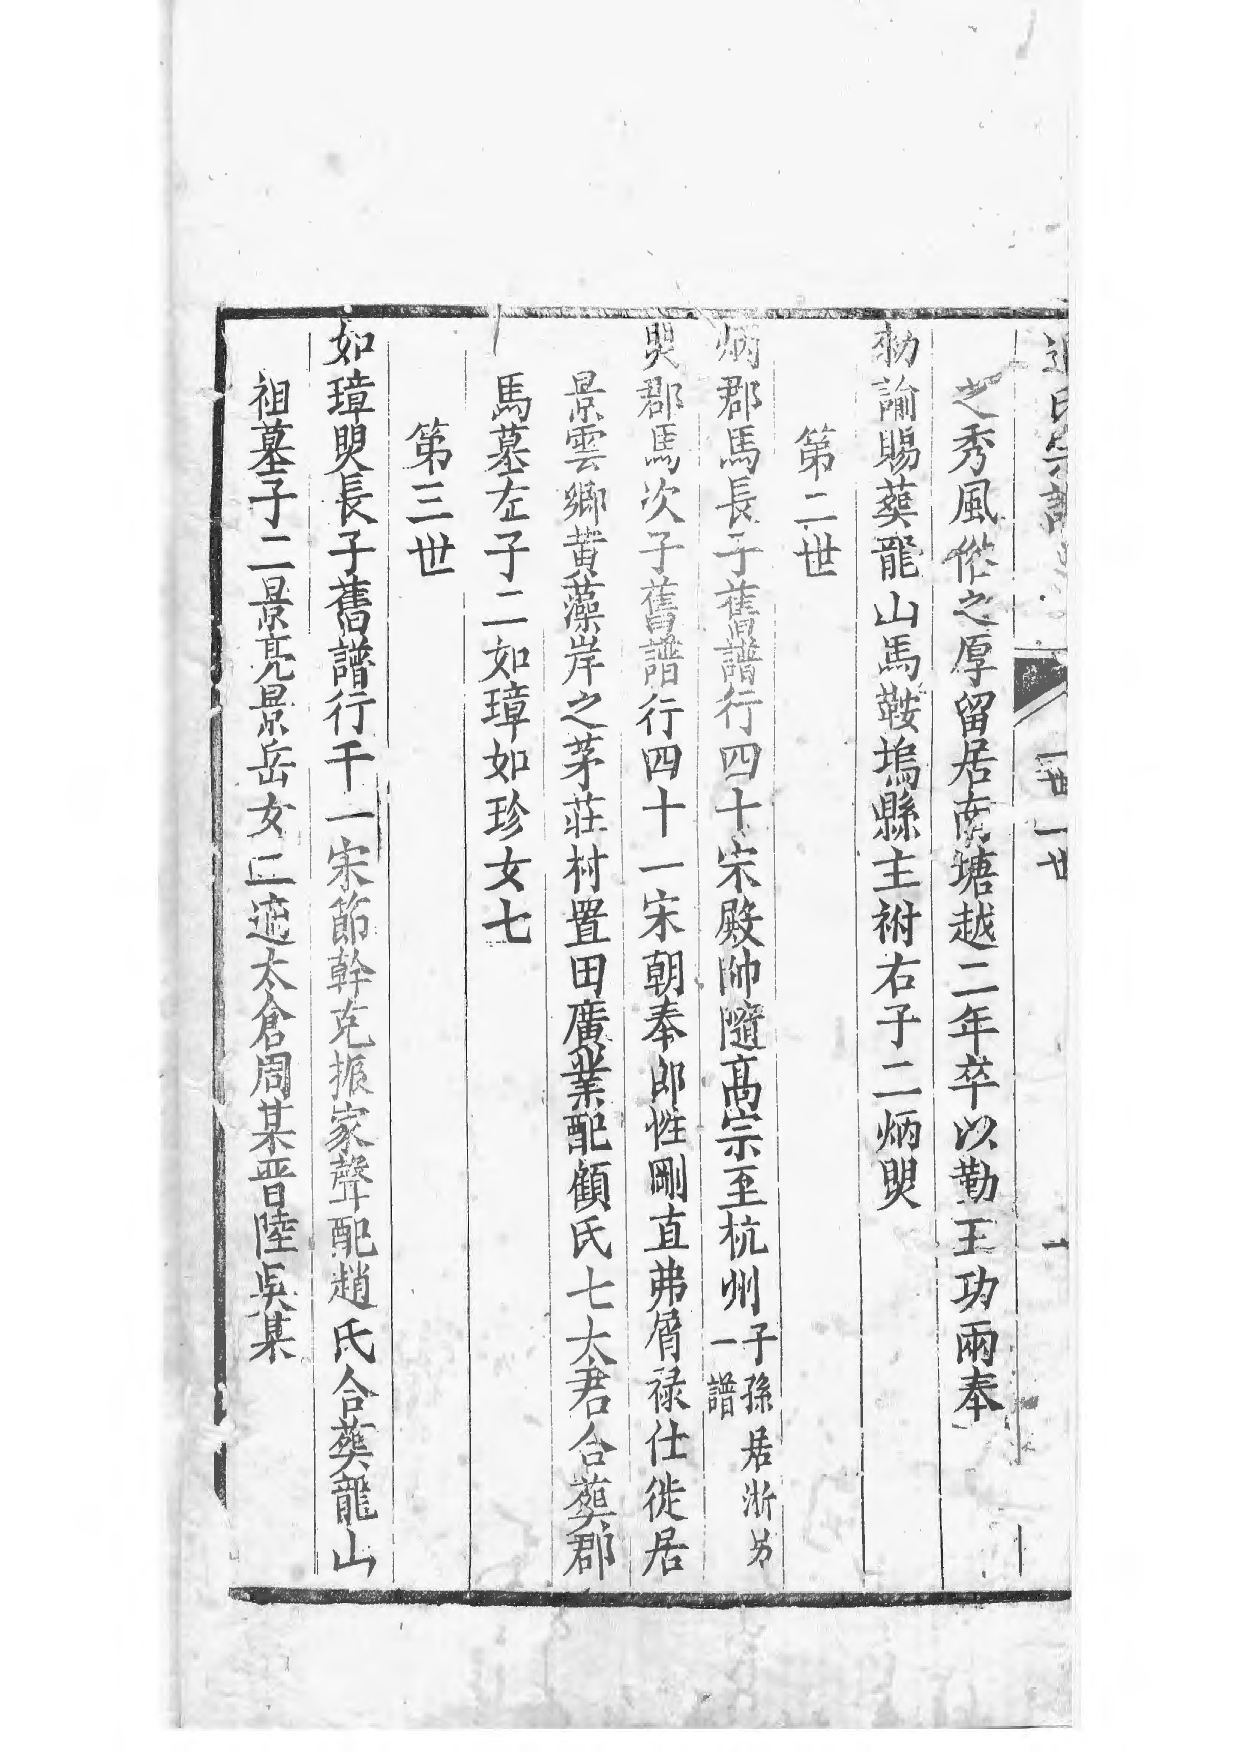 氏宗譜
一世 二世
一
之秀風俗之厚留居南塘越二年卒以勤王功兩奉
勑諭賜葬龍山馬鞍塢縣主祔右子二炳煚
第二世
炳郡馬長子舊譜行四十宋殿帥隨高宗至杭州子孫居浙另一譜
煚郡馬次子舊譜行四十一宋朝奉郎性剛直弗屑祿仕徙居
景雲鄉黃藻岸之茅莊村置田廣業配顧氏七太君合葬郡
馬墓左子二如璋如珍女七
第三世
如璋煚長子舊譜行千一宋節幹克振家聲配趙氏合葬龍山
祖墓子二景亮景岳女二適太倉周某晉陸吳某